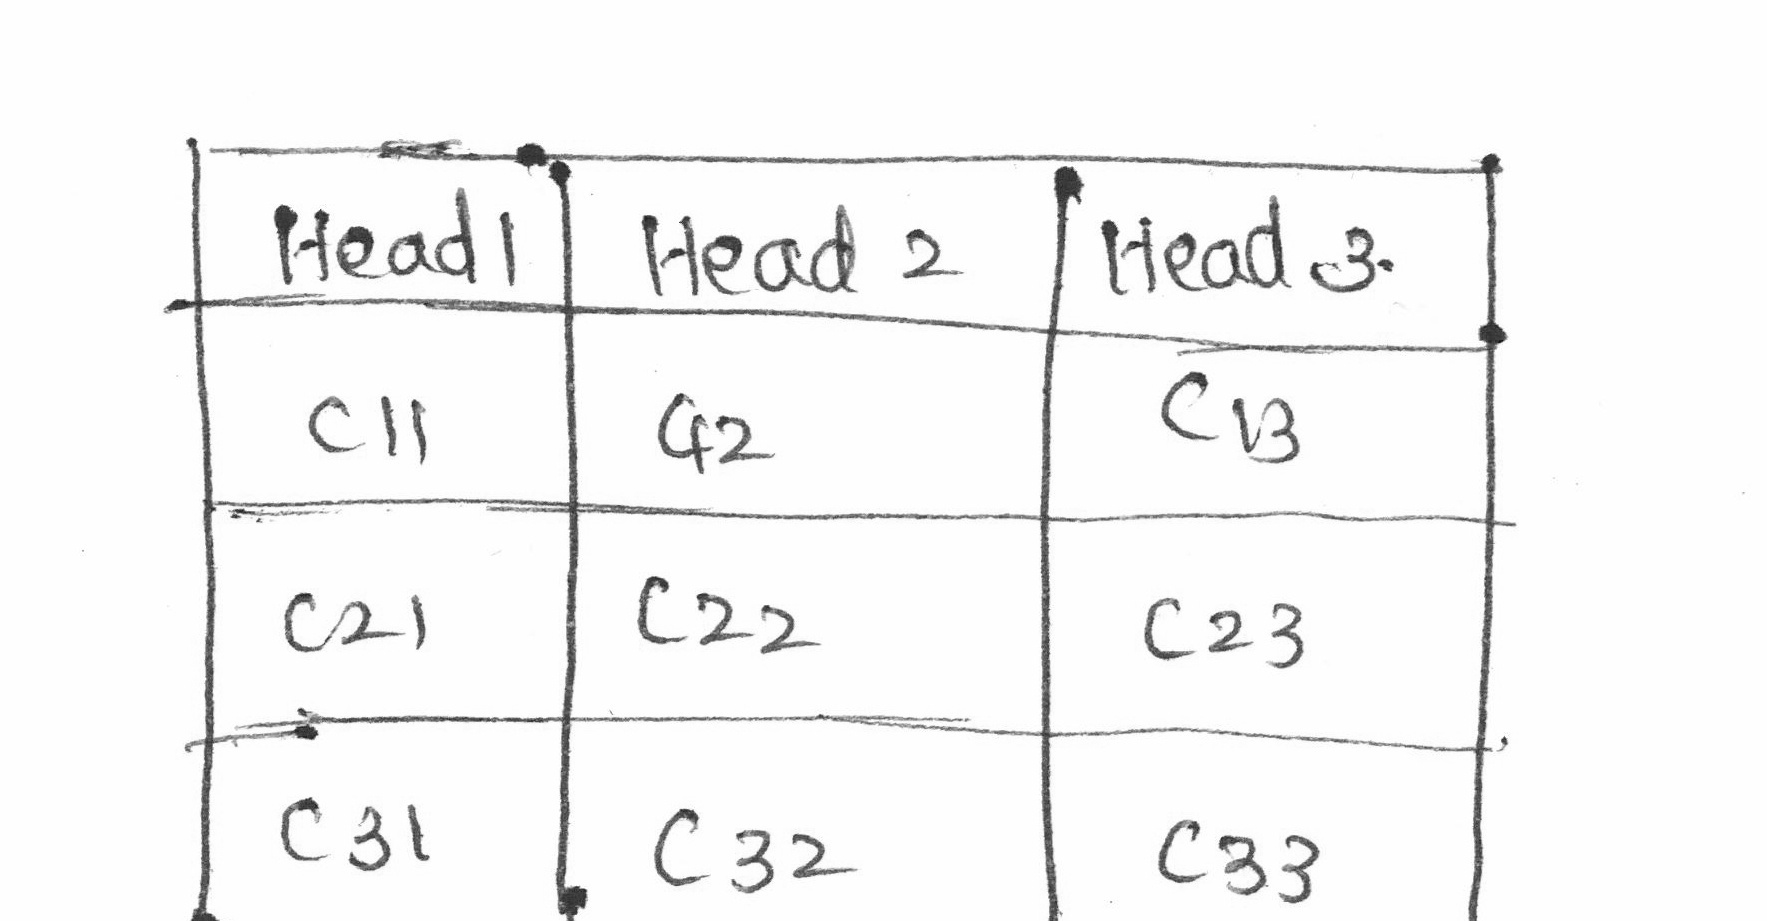 Head 1 Head 2 Head 3.
C11 C12 C13
C21 C22 C23
C31 C32 C33